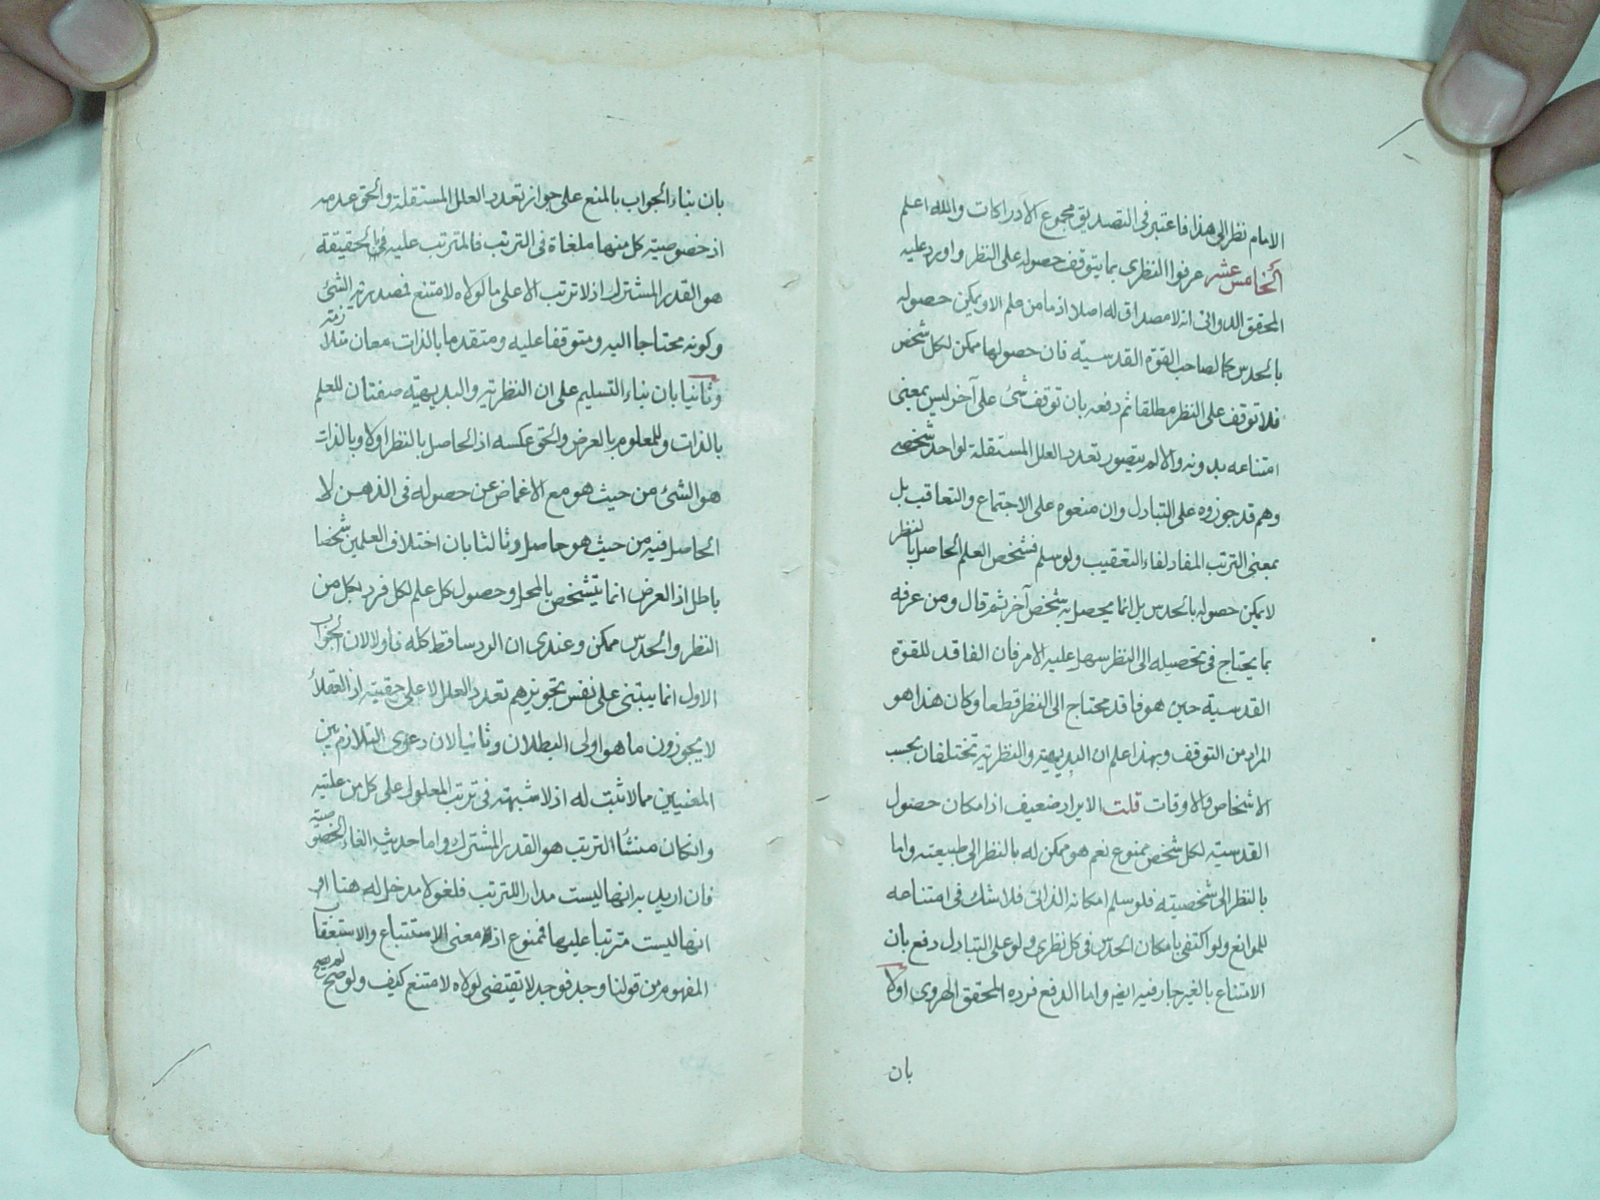 الامام نظر الى هذا فاعتبر فى التصديق مجموع الادراكات والله اعلم
الخامس عشر عرفوا النظرى بما يتوقف حصوله على النظر واورد عليه
المحقق الدوانى انه لا مصداق له اصلا اذ ما من علم الا ويمكن حصوله
بالحدس كما لصاحب القوة القدسية فان حصولها ممكن لكل شخص
فلا توقف على النظر مطلقا ثم دفعه بان توقف شئ على آخر ليس بمعنى
امتناعه بدونه والا لم يتصور تعدد العلل المستقلة لواحد شخصى
وهم قد جوزوه على التبادل وان منعوه على الاجتماع والتعاقب بل
بمعنى الترتب المفاد لفاء التعقيب ولو سلم فشخص العلم الحاصل بالنظر
لا يمكن حصوله بالحدس بل انما يحصل به شخص آخر ثم قال ومن عرفه
بما يحتاج فى تحصيله الى النظر سهل عليه الامر فان الفاقد للقوة
القدسية حين هو فاقد محتاج الى النظر قطعا وكان هذا هو
المراد من التوقف وبهذا علم ان البديهية والنظرية تختلفان بحسب
الاشخاص والاوقات قلت الايراد ضعيف اذ امكان حصول
القدسية لكل شخص ممنوع نعم هو ممكن له بالنظر الى طبيعته واما
بالنظر الى شخصيته فلو سلم امكانه الذاتى فلا شك فى امتناعه
للموانع ولو اكتفى بامكان الحدس فى كل نظرى ولو على التبادل دفع بان
الامتناع بالغير جار فيه ايضا واما الدفع فرده المحقق الهروى اولا
بان
بان بناء الجواب بالمنع على جواز تعدد العلل المستقلة والحق عدمه
اذ خصوصية كل منها ملغاة فى الترتب فالمترتب عليه فى الحقيقة
هو القدر المشترك اذ لا ترتب الا على ما لولاه لامتنع فمصدرية الشئ
وكونه محتاجا اليه ومتوقفا عليه ومتقدما بالذات معان متلازمة
وثانيا بان بناء التسليم على ان النظرية والبديهية صفتان للعلم
بالذات وللمعلوم بالعرض والحق عكسه اذ الحاصل بالنظر اولا وبالذات
هو الشئ من حيث هو مع الاغماض عن حصوله فى الذهن لا
الحاصل فيه من حيث هو حاصل وثالثا بان اختلاف العلمين شخصا
باطل اذ العرض انما يتشخص بالمحل وحصول كل علم لكل فرد بكل من
النظر والحدس ممكن وعندى ان الرد ساقط كله فاولا لان الجواب
الاول انما يبتنى على نفس تجويزهم تعدد العلل لا على حقيته اذ العقلاء
لا يجوزون ما هو اولى البطلان وثانيا لان دعوى التلازم بين
المعنيين مما لا ثبت له اذ لا شبهة فى ترتب المعلول على كل من علتيه
وان كان منشأ الترتب هو القدر المشترك واما حديث الغاء الخصوصية
فان اريد به انها ليست مدارا للترتب فلغو لا مدخل له هنا او
انها ليست مترتبا عليها فممنوع اذ معنى الاستتباع والاستعقاب
المفهوم من قولنا وجد فوجد لا يقتضى لولاه لامتنع كيف ولو صح لم يصح